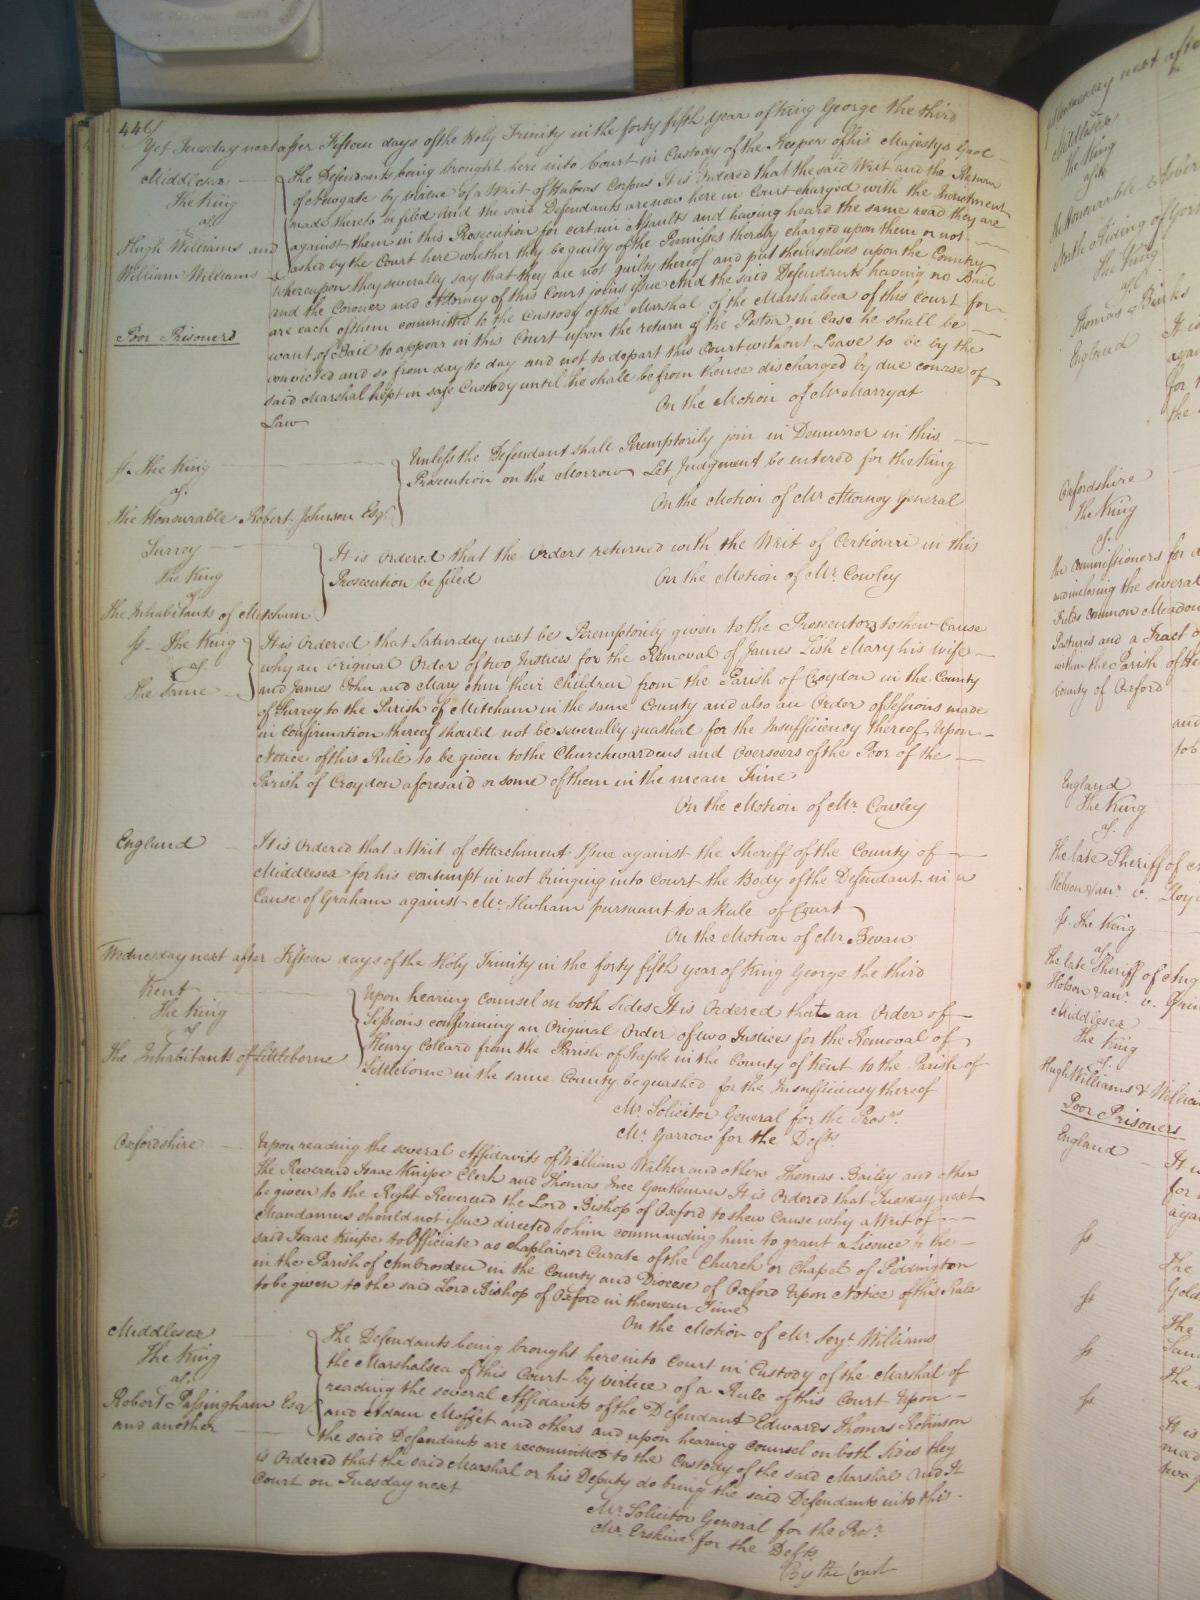 446
Yet Tuesday next after Fifteen days of the Holy Trinity in the forty fifth Year of King George the third
Middlesex
The King
agt.
Hugh Williams and
William Williams
Poor Prisoners
The Defendants being brought here into Court in Custody of the Keeper of his Majestys Gaol
of Newgate by virtue of a Writ of Habeas Corpus It is Ordered that the said Writ and the Return
made thereto be filed And the said Defendants are now here in Court charged with the Indictment
against them in this Prosecution for certain Assaults and having heard the same read they are
asked by the Court here whether they be guilty of the Premisses thereby charged upon them or not
whereupon they severally say that they are not guilty thereof and put themselves upon the Country
and the Coroner and Attorney of this Court joins Issue And the said Defendants having no Bail
are each of them committed to the Custody of the Marshal of the Marshalsea of this Court for
want of Bail to appear in this Court upon the return of the Postea in Case he shall be
convicted and so from day to day and not to depart this Court without Leave to be by the
said Marshal kept in safe Custody until he shall be from thence discharged by due course of
Law
On the Motion of Mr Marryat
ss. The King
agt.
The Honourable Robert Johnson Esqr.
Unless the Defendant shall Peremptorily join in Demurrer in this
Prosecution on the Morrow Let Judgment be entered for the King
On the Motion of Mr Attorney General
Surrey
The King
agt.
The Inhabitants of Mitcham
It is Ordered that the Orders returned with the Writ of Certiorari in this
Prosecution be filed
On the Motion of Mr. Cowley
ss - The King
agt.
The Same
It is Ordered that Saturday next be Peremptorily given to the Prosecutors to shew Cause
why an Original Order of two Justices for the Removal of James Lish Mary his wife
and James John and Mary Ann their Children from the Parish of Croydon in the County
of Surrey to the Parish of Mitcham in the same County and also an Order of Sessions made
in confirmation thereof should not be severally quashed for the Insufficiency thereof Upon
Notice of this Rule to be given to the Churchwardens and Overseers of the Poor of the
Parish of Croydon aforesaid or some of them in the mean Time
On the Motion of Mr. Cowley
England
It is Ordered that a Writ of Attachment Issue against the Sheriff of the County of
Middlesex for his contempt in not bringing into Court the Body of the Defendant in a
Cause of Graham against Mc. pursuant to a Rule of Court
On the Motion of Mr. Bevan
Wednesday next after Fifteen days of the Holy Trinity in the forty fifth year of King George the third
Kent
The King
agt
The Inhabitants of Littleborne
Upon hearing Counsel on both Sides It is Ordered that an Order of
Sessions confirming an Original Order of two Justices for the Removal of
Henry Collard from the Parish of Staple in the County of Kent to the Parish of
Littleborne in the same County be quashed for the Insufficiency thereof
Mr. Solicitor General for the Prosrs
Mr. Garrow for the Defts
Oxfordshire
Upon reading the several Affidavits of William Walker and others Thomas Bailey and others
the Reverend Isaac Knipe Clerk and Thomas Gentleman It is Ordered that Tuesday next
be given to the Right Reverend the Lord Bishop of Oxford to shew Cause why a Writ of
Mandamus should not issue directed to him commanding him to grant a Licence to the
said Isaac Knipe to Officiate as Chaplain or Curate of the Church or Chapel of Piddington
in the Parish of Ambrosden in the County and Diocese of Oxford Upon Notice of this Rule
to be given to the said Lord Bishop of Oxford in the mean Time
On the Motion of Mr. Serjt. Williams
Middlesex
The King
agt.
Robert Passingham Esqr
and another
The Defendants being brought here into Court in Custody of the Marshal of
the Marshalsea of this Court by virtue of a Rule of this Court Upon
reading the several Affidavits of the Defendant Edwards Thomas Robinson
and Adam Moffet and others and upon hearing Counsel on both Sides they
the said Defendants are recommitted to the Custody of the said Marshal And It
is Ordered that the said Marshal or his Deputy do bring the said Defendants into this
Court on Tuesday next
Mr. Solicitor General for the Prosr.
Mr. Erskine for the Defts
By the Court
Wednesday next after
Middlesex
The King
agt
North Riding of
The King
agt.
Thomas Binks
England
It is
for
the
Oxfordshire
The King
agt.
The Commissioners for
and inclosing the several
Fields Common Meadow
Pastures and a Tract
within the Parish of
County of Oxford
England
The King
agt.
The late Sheriff of
ss. The King
agt.
The late Sheriff of
Middlesex
The King
agt.
Hugh Williams &
Poor Prisoners
England
ss
ss
ss
ss
The
The
It is